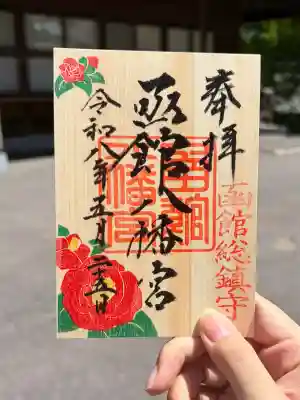 奉拝
函館総鎮守
函館八幡宮
函館八幡宮
令和八年五月二十五日